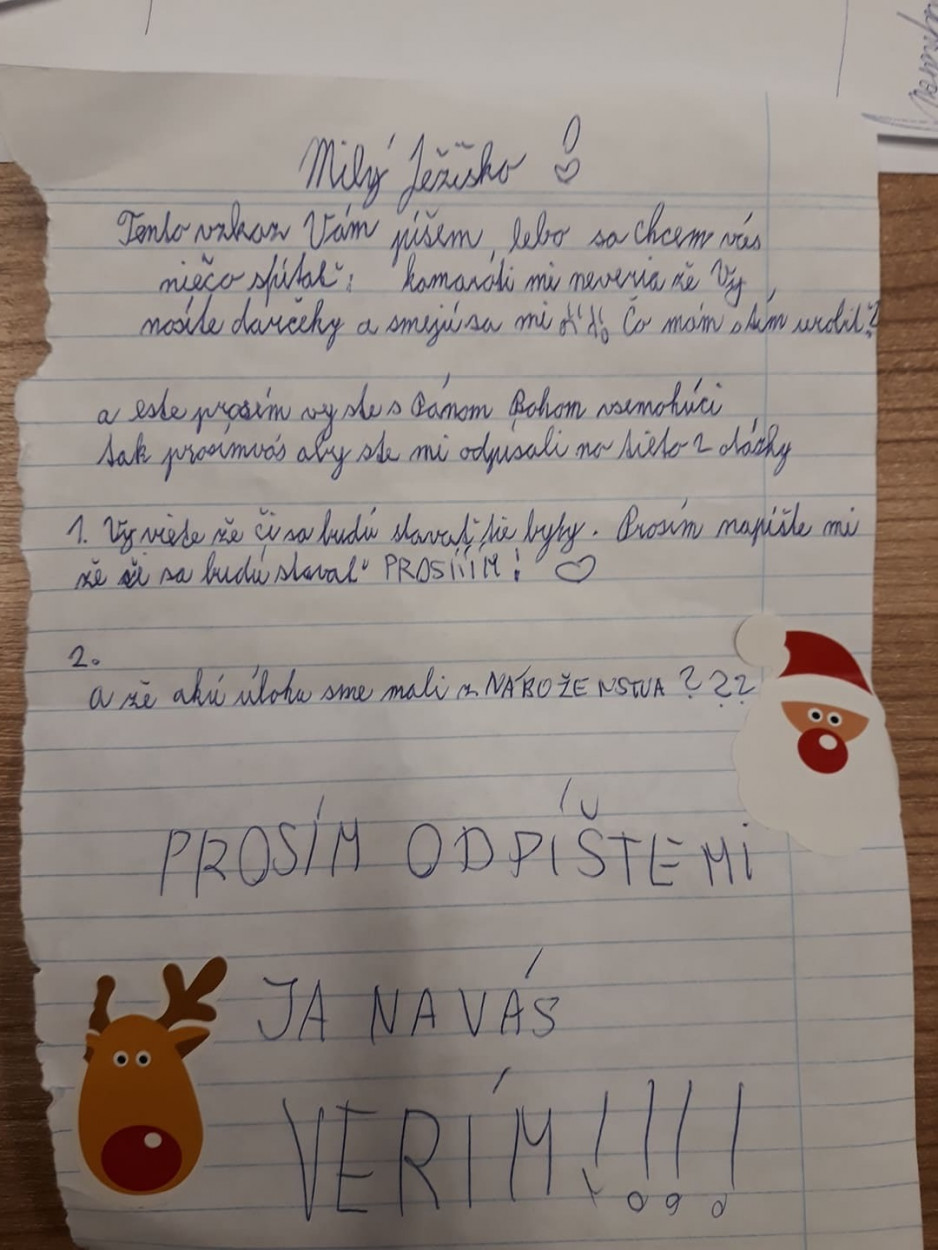 Milý Ježiško !
Tento vzkaz Vám píšem, lebo sa chcem vás
niečo spítať: kamaráti mi neveria že Vy
nosíte darčeky a smejú sa mi Čo mám stím urobiť?
a este prosím vy ste s Pánom Bohom vsemohúci
tak prosímvás aby ste mi odpísali na tieto 2 otázky
1. Vy viete že či sa budú stavať tie byty. Prosím napíšte mi
že či sa budú stavať PROSÍÍÍM!
2.
a že akú úlohu sme mali z NÁBOŽENSTVA ???
PROSÍM ODPÍŠTE MI
JA NA VÁS
VERÍM!!!!